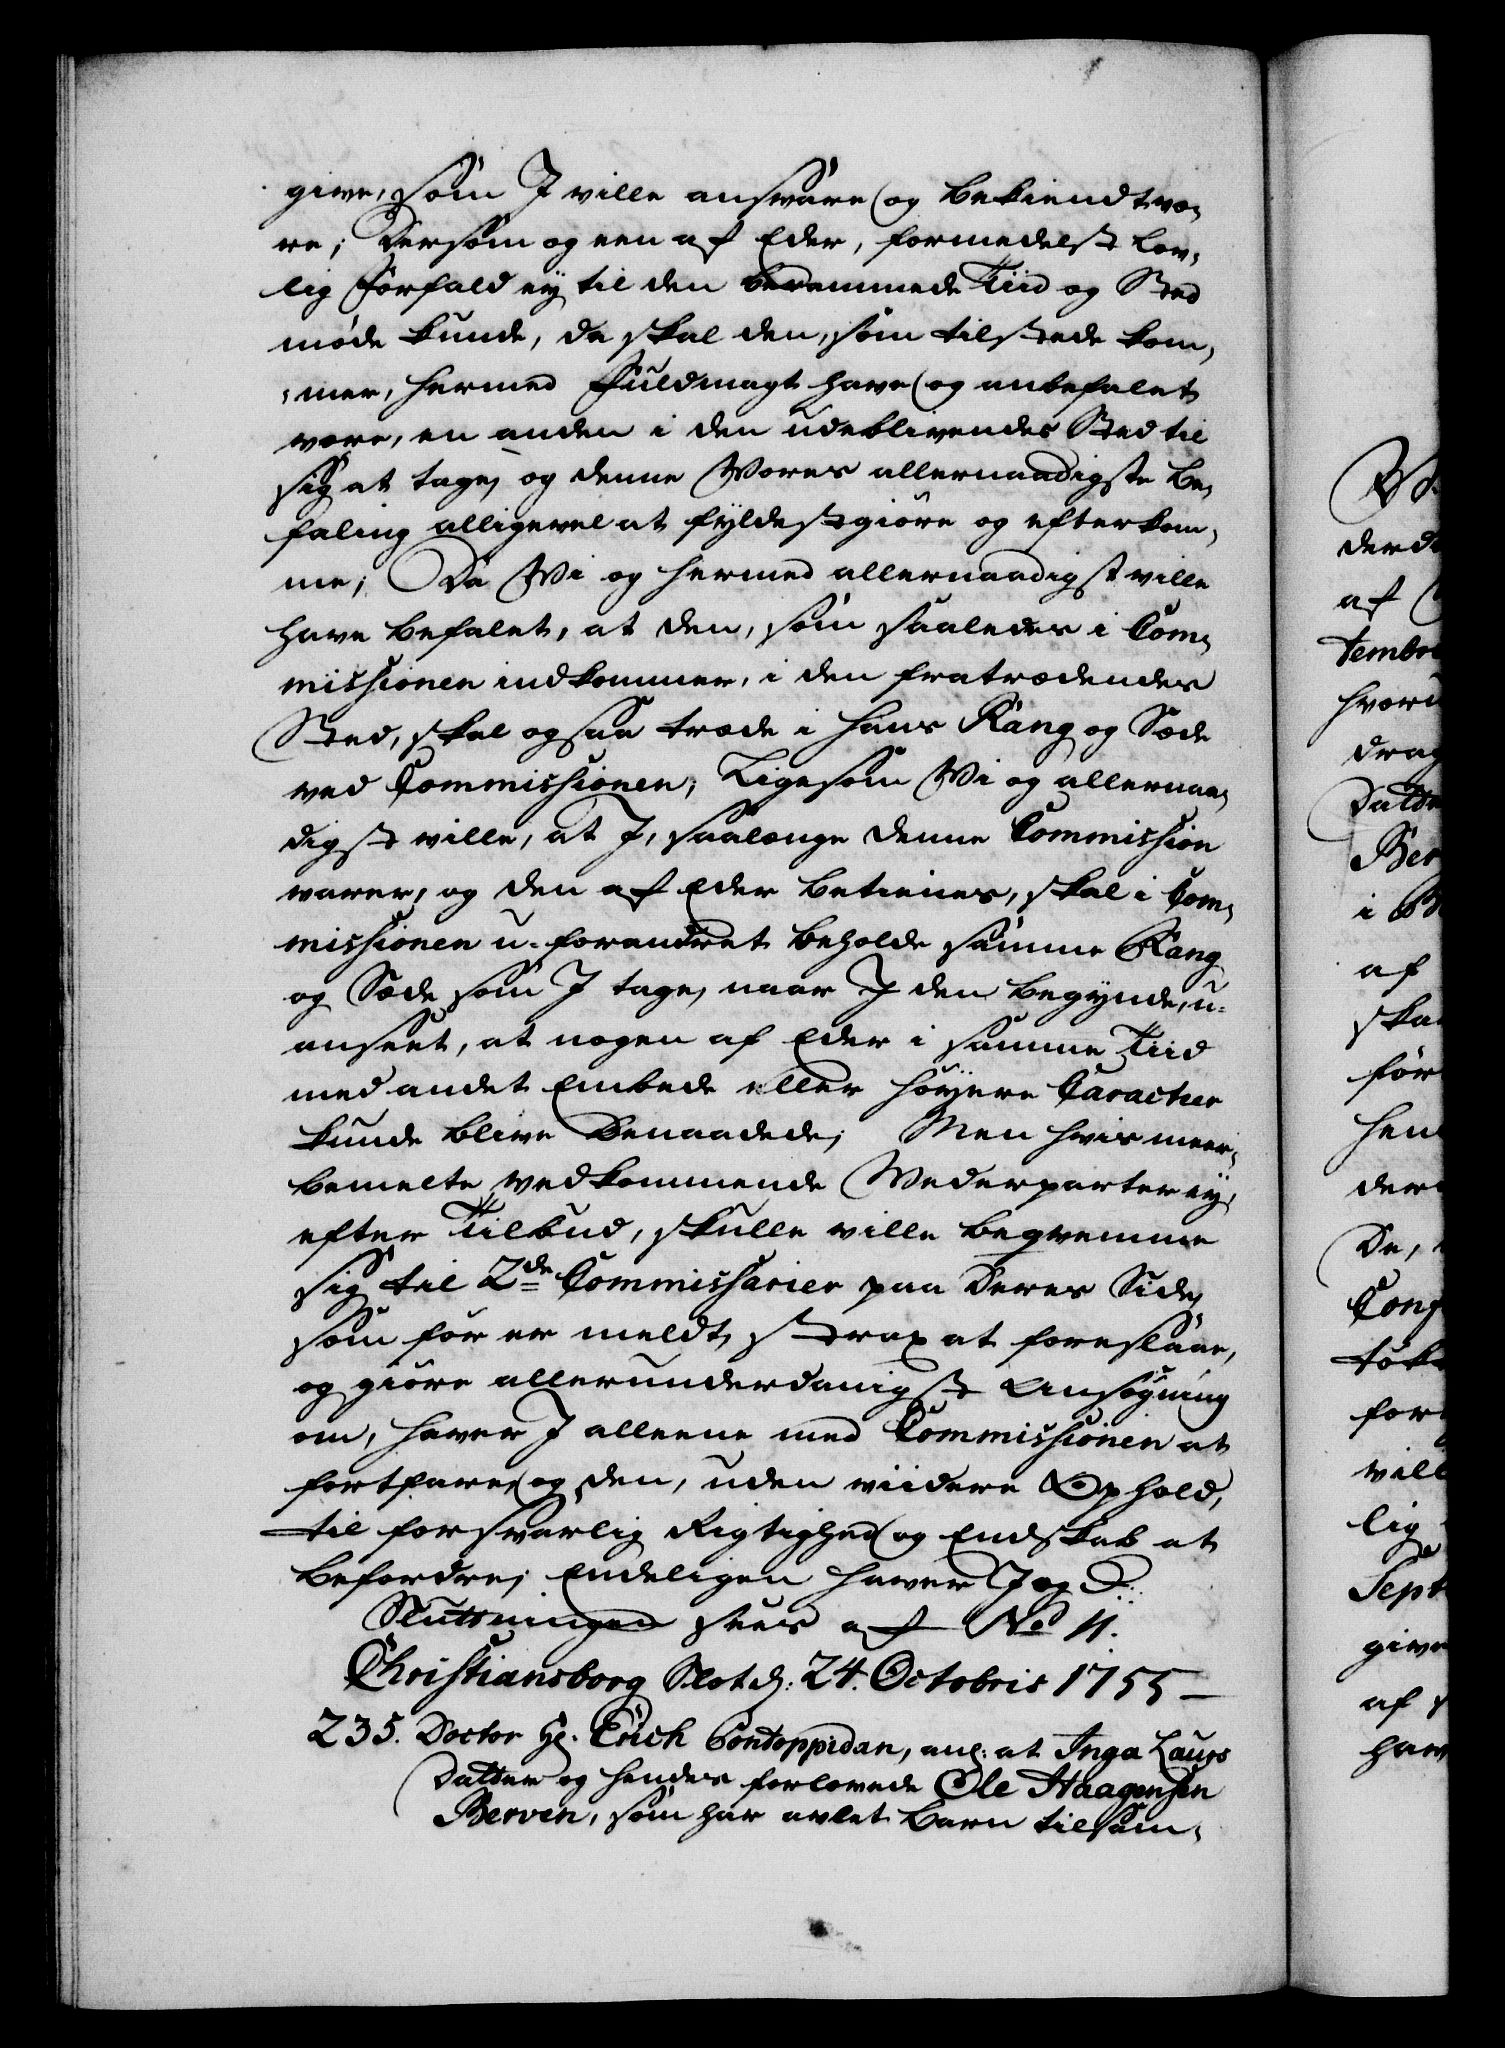 give, som I ville ansvare og bekiendt væ,
re; Dersom og een af Eder, formedelst Lov,
lig Forfald ey til den berammede Tiid og Sted
møde kunde, da skal den, som tilstede kom,
,mer, hermed Fuldmagt have og anbefalet
være, en anden i den udeblivendes Sted til
sig at tage, og denne Vores allernaadigste Be,
faling alligevel at fyldestgiøre og efterkom,
me; Da Vi og hermed allernaadigst ville
have befalet, at den, som saaledes i Com,
missionen indkommer, i den fratrædendes
Sted, skal ogsaa træde i hans Rang og Sæde
ved Commissionen; Ligesom Vi og allernaa,
digst ville, at I, saalænge denne Commission
varer, og den af Eder betienes, skal i Com,
missionen u-forandret beholde samme Rang
og Sæde, som I tage, naar I den begynde, u-
anseet, at nogen af Eder i samme Tiid
med andet Embede eller höyere Caracteer
kunde blive Benaadede; Men hvis meer,
bemelte vedkommende Vederparter ey,
efter Tilbud, skulle ville beqvemme
sig til 2de Commissarier paa Deres Side,
som før er meldt, strax at foreslaae,
og giøre allerunderdanigst Ansøgning
om, haver I alleene med Commissionen at
fortfare, og den, uden viidere Ophold,
til forsvarlig Rigtighed og Endskab at
befordre; Endeligen haver I og P:
Sluttningen sees af No 11.
Christiansborg Slot d: 24. Octobris 1755 —
235. Doctor Hr. Erich Pontoppidan, anl: at Inga Laurs
Datter og hendes forlovede Ole Haagensen
Berven, som har avlet Barn tilsam,